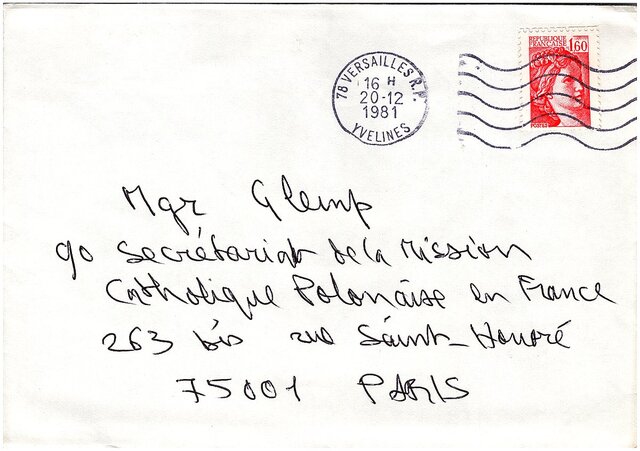 78 VERSAILLES R.P.
16 H
20-12
1981
YVELINES
REPUBLIQUE
FRANCAISE
1,60
POSTES
Mgr Glemp
c/o Secrétariat de la Mission
Catholique Polonaise en France
263 bis rue Saint-Honoré
75001 PARIS